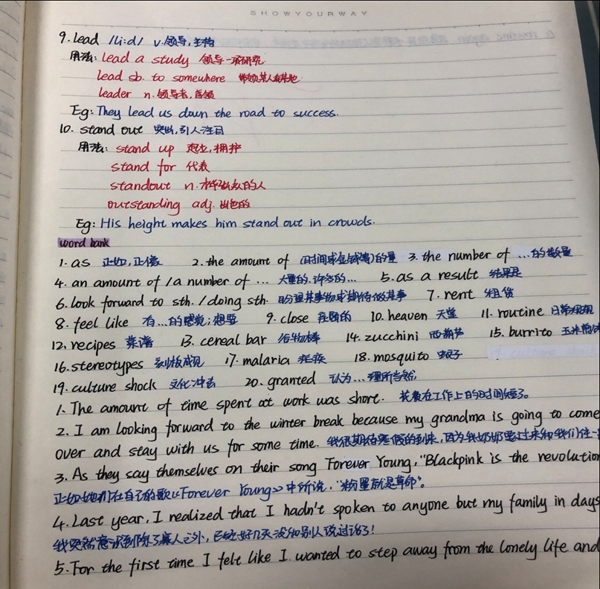 SHOWYOURWAY
9. lead /li:d/ v.领导,主持
用法: lead a study 领导一项研究
lead sb. to somewhere 带领某人去某地
leader n.领导者,首领
Eg: They lead us down the road to success.
10. stand out 突出,引人注目
用法: stand up 起立,拥护
stand for 代表
standout n.
outstanding adj. 出色的
Eg: His height makes him stand out in crowds.
word bank
1. as 正如,正像 2. the amount of (时间或金钱等)的量 3. the number of ...的数量
4. an amount of / a number of ... 大量的,许多的... 5. as a result 结果是
6. look forward to sth. / doing sth. 盼望某事物或期待做某事 7. rent 租赁
8. feel like 有...的感觉;想要 9. close 亲密的 10. heaven 天堂 11. routine 日常
12. recipes 菜谱 13. cereal bar 谷物棒 14. zucchini 西葫芦 15. burrito 玉米
16. stereotypes 刻板成见 17. malaria 疟疾 18. mosquito 蚊子
19. culture shock 文化冲击 20. granted 认为...理所当然
1. The amount of time spent at work was short. 花费在工作上的时间短了。
2. I am looking forward to the winter break because my grandma is going to come
over and stay with us for some time. 我很期待寒假的到来,因为我奶奶要过来和我们住一
3. As they say themselves on their song Forever Young, "Blackpink is the revolution
正如她们在自己的歌《Forever Young》中所说,"粉墨就是革命"。
4. Last year, I realized that I hadn't spoken to anyone but my family in days
我突然意识到除了家人之外,已经好几天没和别人说过话了!
5. For the first time I felt like I wanted to step away from the lonely life and